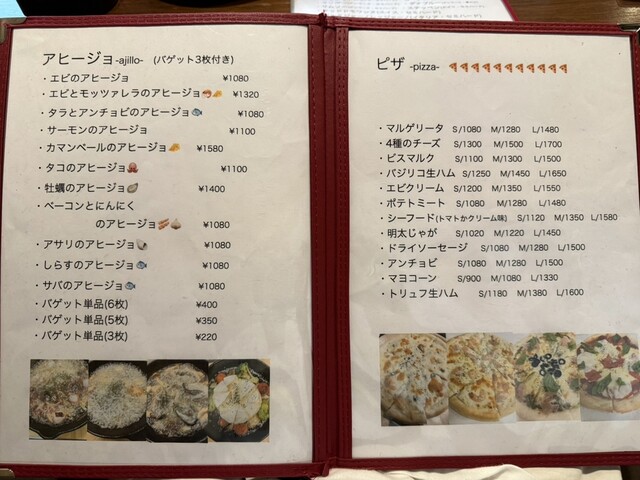 アヒージョ-ajillo- (バゲット3枚付き)
・エビのアヒージョ ¥1080
・エビとモッツァレラのアヒージョ🦐🧀 ¥1320
・タラとアンチョビのアヒージョ🐟 ¥1080
・サーモンのアヒージョ ¥1100
・カマンベールのアヒージョ🧀 ¥1580
・タコのアヒージョ🐙 ¥1100
・牡蠣のアヒージョ🦪 ¥1400
・ベーコンとにんにく
のアヒージョ🥓🧄 ¥1080
・アサリのアヒージョ🐚 ¥1080
・しらすのアヒージョ🐟 ¥1080
・サバのアヒージョ🐟 ¥1080
・バゲット単品(6枚) ¥400
・バゲット単品(5枚) ¥350
・バゲット単品(3枚) ¥220
ピザ -pizza- 🍕🍕🍕🍕🍕🍕🍕🍕🍕🍕🍕
・マルゲリータ S/1080 M/1280 L/1480
・4種のチーズ S/1300 M/1500 L/1700
・ビスマルク S/1100 M/1300 L/1500
・バジリコ生ハム S/1250 M/1450 L/1650
・エビクリーム S/1200 M/1350 L/1550
・ポテトミート S/1080 M/1280 L/1480
・シーフード(トマトかクリーム味) S/1120 M/1350 L/1580
・明太じゃが S/1020 M/1220 L/1450
・ドライソーセージ S/1080 M/1280 L/1500
・アンチョビ S/1080 M/1280 L/1500
・マヨコーン S/900 M/1080 L/1330
・トリュフ生ハム S/1180 M/1380 L/1600